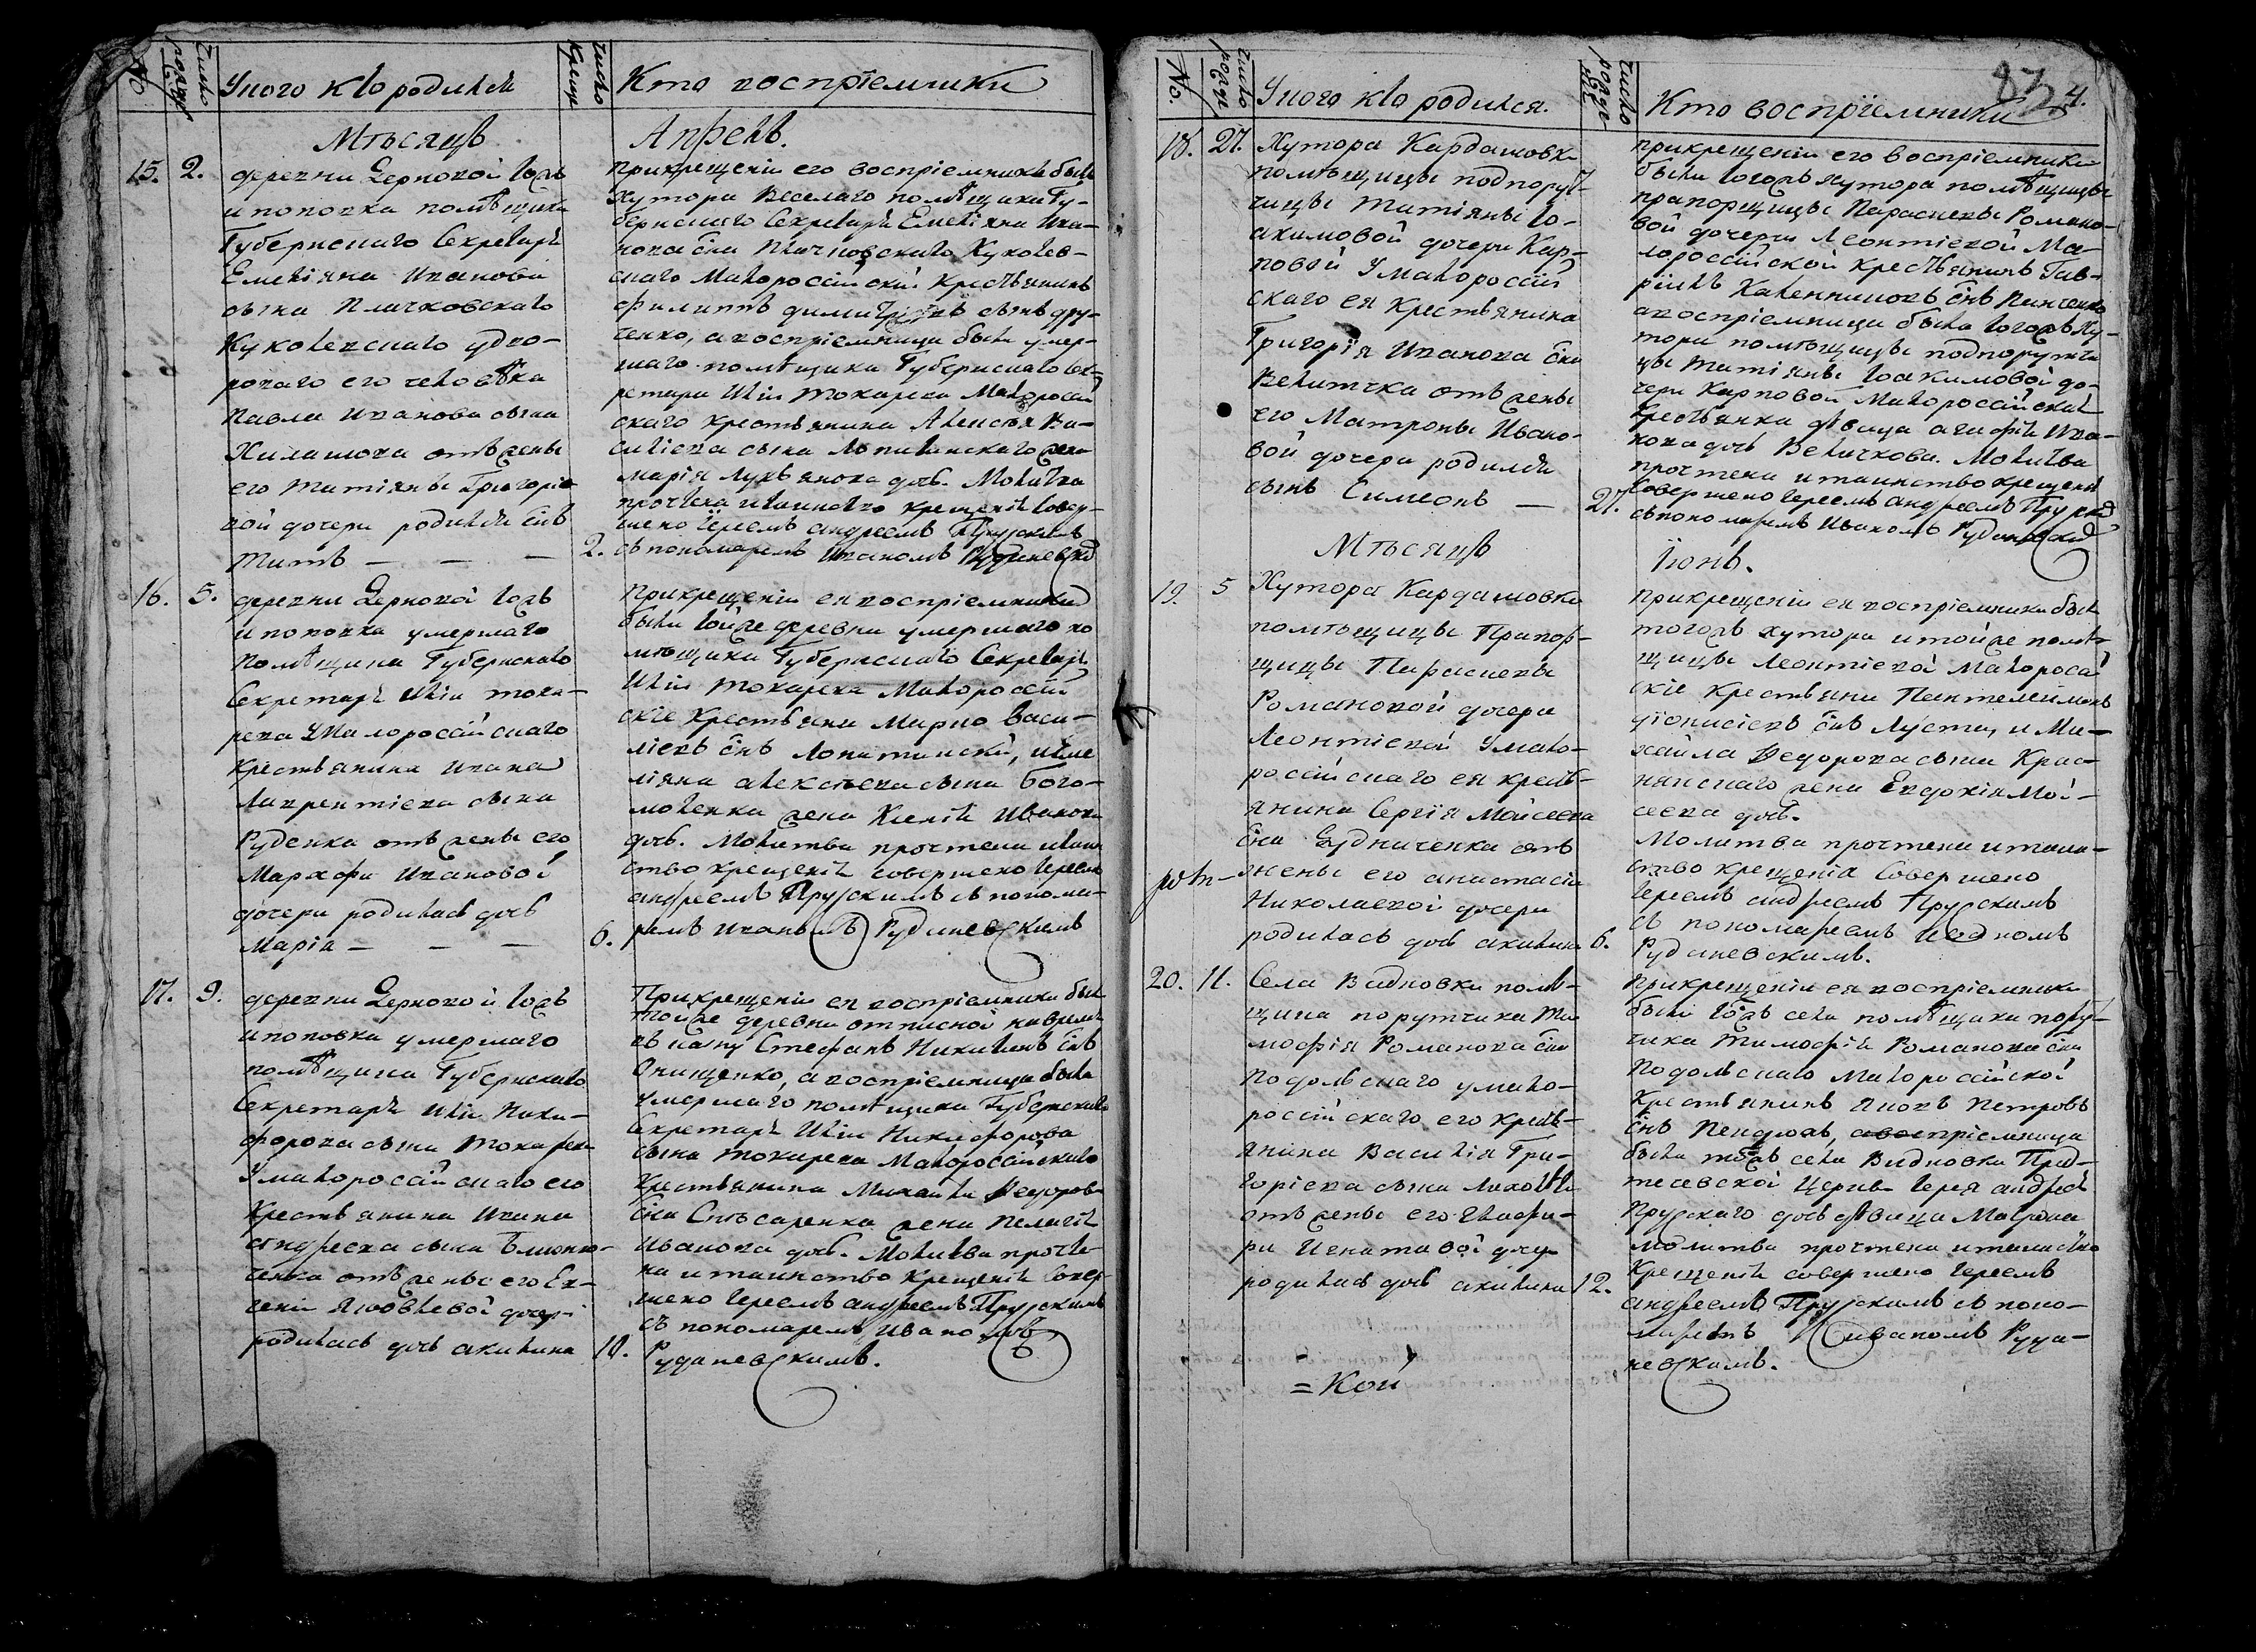 No
число рожд:
У кого кто родился
число крещ:
Кто воспрiемники
Мѣсяцъ
Апрель.
15. 2.
деревни Терновой тожъ
и поповка помѣщика
Губернскаго Секретаря
Емелiяна Иванова
сына Плачковскаго
двo-
роваго его человѣка
Павла Иванова сына
отъ жены
его Татiяны Григорiе-
вой дочери родился снъ
Титъ — — —
2.
При крещенiи его воспрiемники были
Хутора Веселаго помѣщика Гу-
бернскаго Секретаря Емелiяна Ива-
нова сна Плачковскаго
Малороссiйскiй Крестьянинъ
Филиппъ димитрiевъ сынъ
а воспрiемница была умер-
шаго помѣщика Губернскаго Сек-
ретаря Илiи Токарева Малоросiй
скаго крестьянина Алексѣя Ва-
силiева сына Лопатинскаго жена
марiя Лукьянова дчь. Молитва
прочтена и таинство крещенiя совер-
шено Iереемъ андреемъ Прускимъ
съ пономаремъ Иваномъ Руданевскимъ
16. 5.
деревни Терновой тожъ
и поповка умершаго
Помѣщика Губернскаго
Секретаря Илiи тока-
рева У Малороссiйскаго
крестьянина Ивана
Лаврентiева сына
Руденка отъ жены его
Марфы Ивановой
дочери родилась дчь
Марiя — — —
6.
При крещенiи ея воспрiемники
были тойже деревни умершаго по
мѣщика Губернскаго Секретаря
Илiи токарева Малороссiй
скiе крестьяни Марко васи-
лiевъ снъ Лопатинскiй, и Еме
лiяна алексѣева сына бого-
моленка жена Ивановa
дчь. Молитва прочтена и таин
ство крещенiя совершено Iереемъ
андреемъ Прускимъ съ понома-
ремъ Иваномъ Руданевскимъ
17. 9.
деревни Терновой тожъ
и поповка умершаго
помѣщика Губернскаго
Секретаря Илiи Ники-
форова сына токарева
У малороссiйскаго его
крестьянина Ивана
андреева сына
отъ жены его Ев-
генiи Яковлевой дочери
родилась дчь акилина
10.
При крещенiи ея воспрiемники были
тойже деревни отписной на время
въ казну Стефанъ снъ
Онищенко, а воспрiемница была
умершаго помѣщика Губернскаго
Секретаря Илiи Никифорова
сына токарева Малороссiйскаго
крестьянина Михаила Федорова
сна Слѣсаренка жена Пелагiя
Иванова дчь. Молитва прочте-
на и таинство крещенiя совер-
шено Iереемъ андреемъ Прускимъ
съ пономаремъ Иваномъ
Руданевскимъ.
No.
число рожд:
У кого кто родился.
число
Кто воспрiемники
4.
18. 27.
Хутора Кардашовки
помѣщицы подпоруч-
чицы татiяны Iо-
акимовой дочери Кар-
повой У малороссiй
скаго ея крестьянина
Григорiя Иванова сна
Величка отъ жены
его Матроны Ивано-
вой дочери родился
сынъ Симеонъ —
27.
При крещенiи его воспрiемники
были тогожъ хутора помѣщицы
прапорщицы Параскевы Романо-
вой дочери Леонтiевой Ма-
лороссiйской крестьянинъ Гав-
рiилъ снъ
а воспрiемница была тогожъ ху-
тора помѣщицы подпоручи
цы татiяны Iоакимовой до-
чери Карповой Малороссiйская
крестьянка дѣвица агафiя Ива-
нова дчь Величкова. Молитва
прочтена и таинство крещенiя
совершено Iереемъ андреемъ Прускимъ
съ пономаремъ Иваномъ Руданевскимъ
Мѣсяцъ
Iюнь.
19. 5
Хутора Кардашовки
помѣщицы Прапор-
щицы Параскевы
Романовой дочери
Леонтiевой У мало-
россiйскаго ея крест-
янина Сергiя Мойсеева
сна отъ
жены его анастасiи
Николаевой дочери
родилась дчь акилина
6.
При крещенiи ея воспрiемники были
тогожъ хутора и тойже помѣ-
щицы Леонтiевой Малоросiй
скiе крестьяни Пантелеимонъ
дiонисiевъ снъ и Ми-
хайла Федорова сына Крас-
нянскаго жена Евдокiя Мой-
сеева дчь.
Молитва прочтена и таин-
ство крещенiя совершено
Iереемъ андреемъ Прускимъ
съ пономаремъ Иваномъ
Руданевскимъ.
20. 11.
Села Видновки помѣ-
щика порутчика Ти
мофiя Романова сна
Подольскаго у мало-
россiйскаго его крест-
янина Василiя Гри-
горiева сына
отъ жены его Гликe-
рiи Игнатовой дочери
родилась дчь акилина
12.
При крещенiи ея воспрiемники
были тогожъ села помѣщика пору-
чика Тимофiя Романова сна
Подольскаго Малороссiйской
крестьянинъ Яковъ Петровъ
снъ а воспрiемница
была тогожъ села Видновки
Церкви Iерея андрея
Прускаго дчь дѣвица Матрона
молитва прочтена и таинство
крещенiя совершено Iереемъ
андреемъ Прускимъ съ поно-
маремъ иваномъ Руда-
невскимъ.